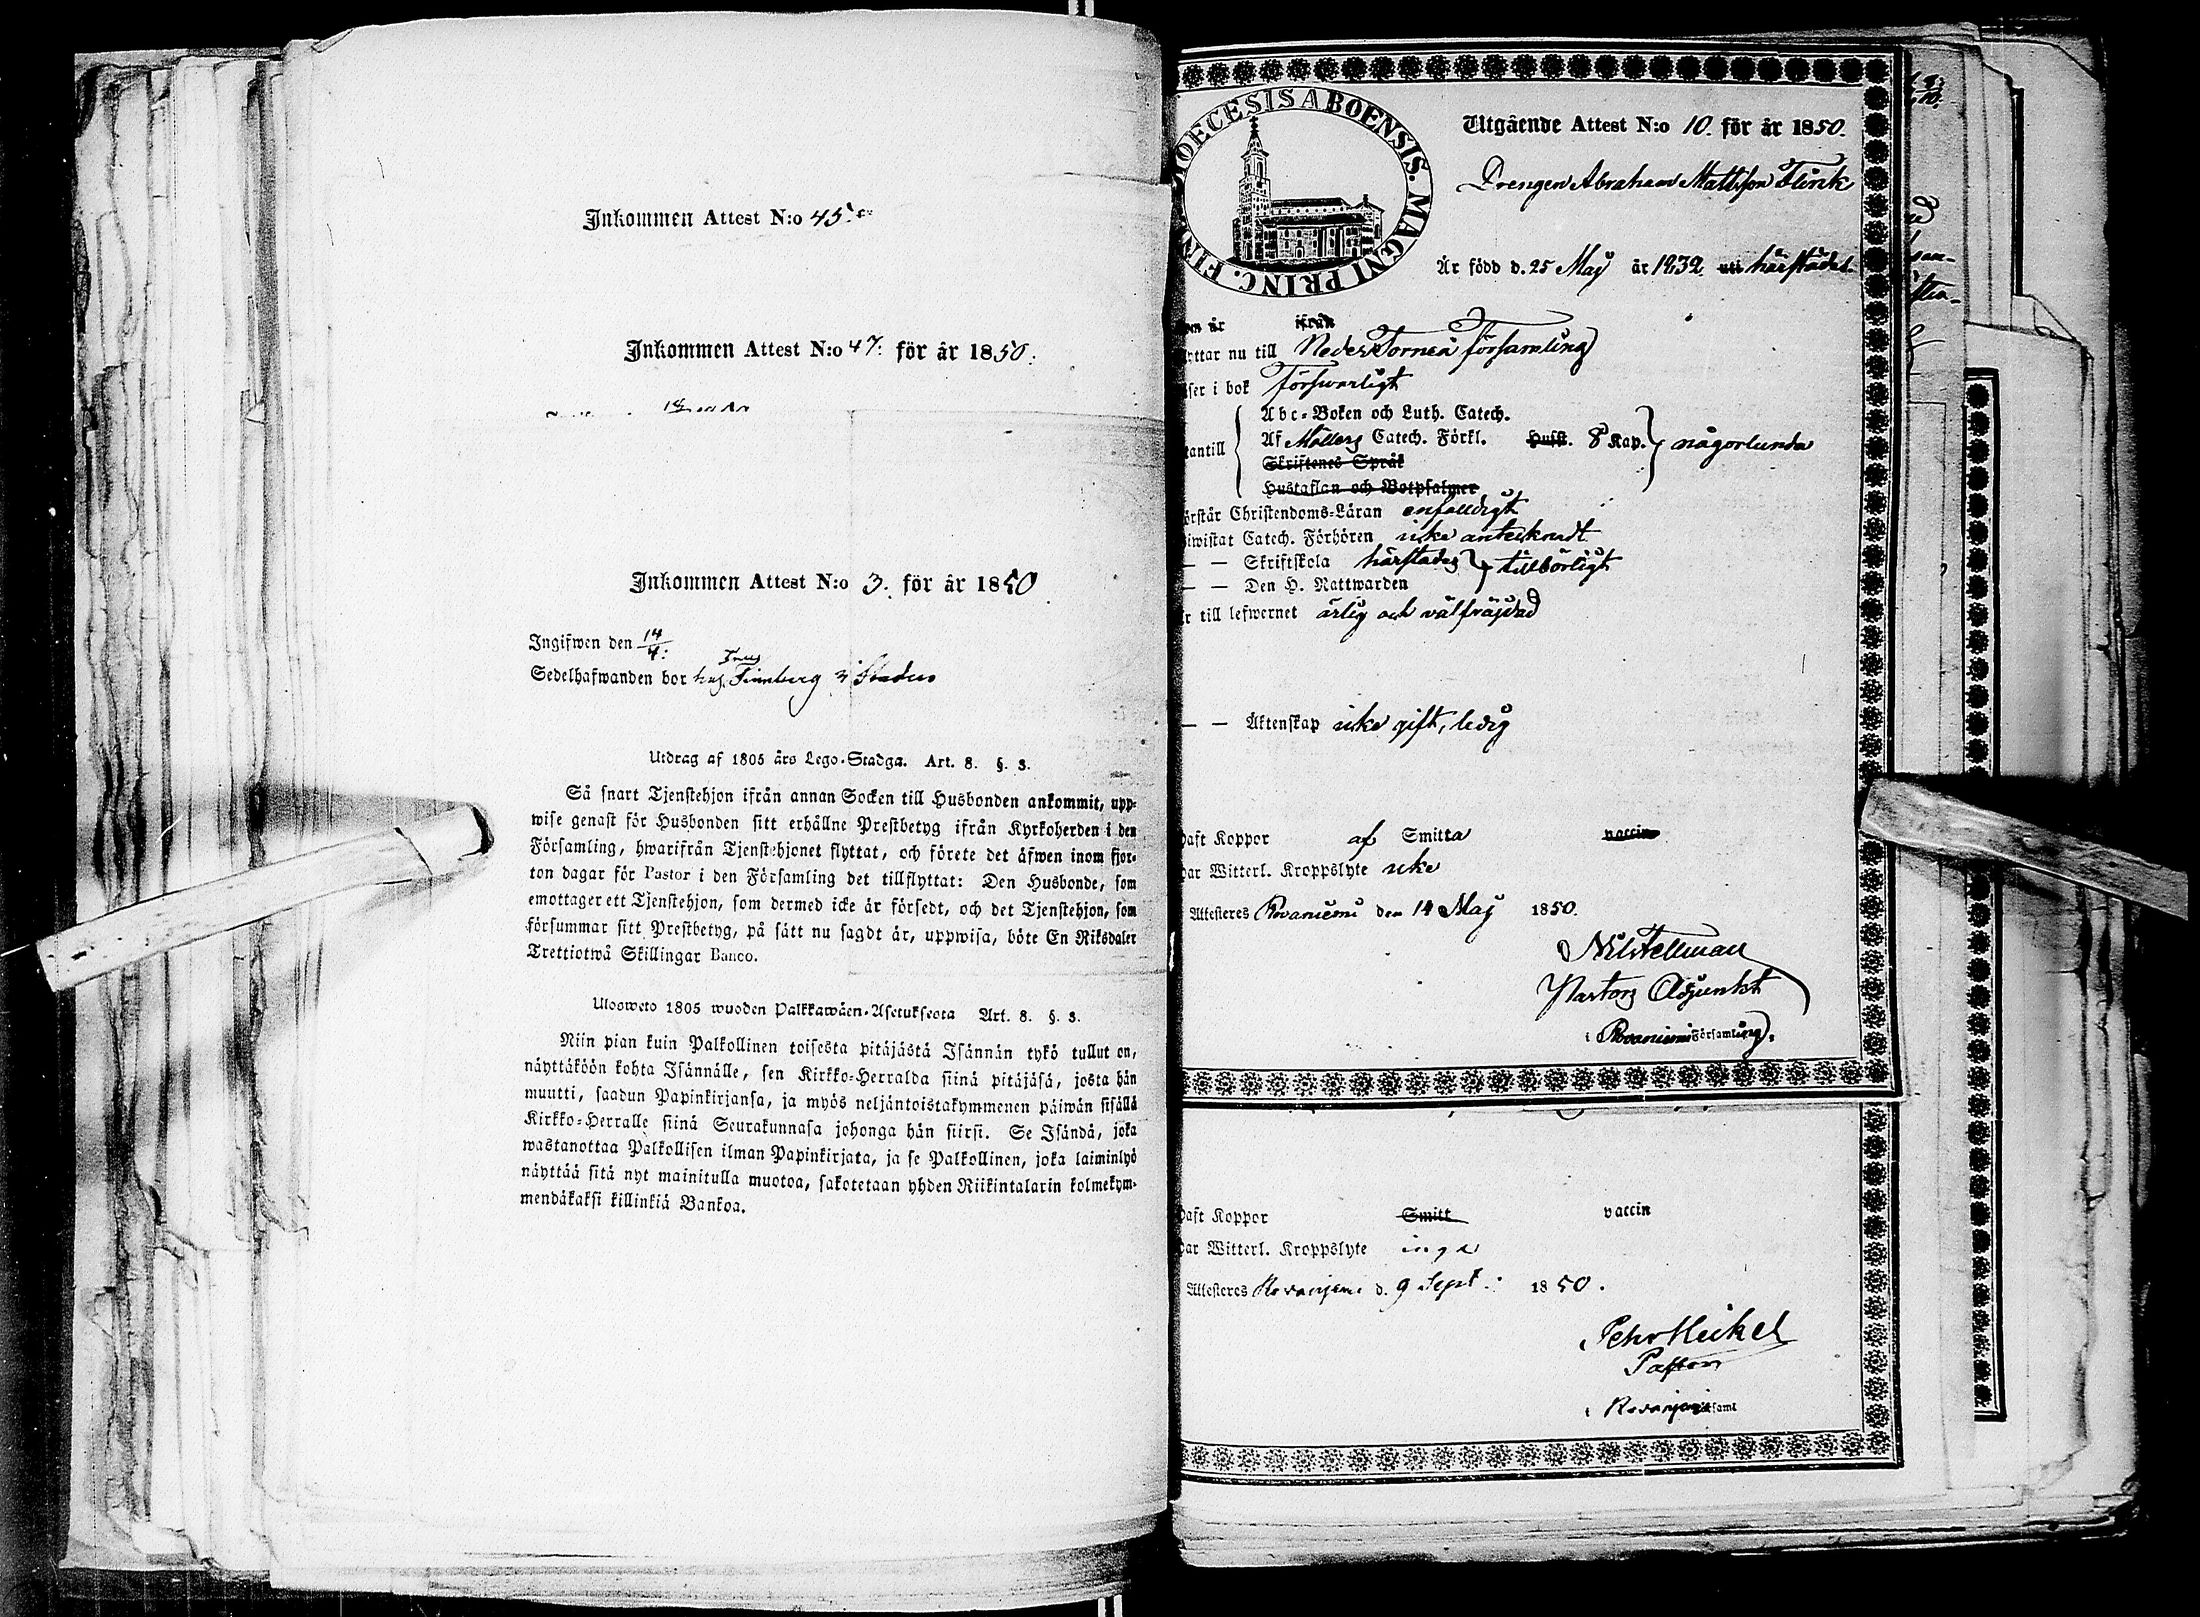 Inkommen Attest N:o 45.
Inkommen Attest N:o 47: för år 1850.
Inkommen Attest N:o 3. för år 1850
Ingifwen den 14/4:
Sedelhafwanden bor hos Finnberg i Staden
Utdrag af 1805 års Lego-Stadga. Art. 8. §. 3.
Så snart Tjenstehjon ifrån annan Socken till Husbonden ankommit, upp-
wise genast för Husbonden sitt erhållne Prestbetyg ifrån Kyrkoherden i den
Församling, hwarifrån Tjenstehjonet flyttat, och förete det äfwen inom fjor-
ton dagar för Pastor i den Församling det tillflyttat: Den Husbonde, som
emottager ett Tjenstehjon, som dermed icke är försedt, och det Tjenstehjon, som
försummar sitt Prestbetyg, på sätt nu sagdt är, uppwisa, böte En Riksdaler
Trettiotwå Skillingar Banco.
Ulosweto 1805 wuoden Palkkawäen-Asetuksesta Art. 8. §. 3.
Niin pian kuin Palkollinen toisesta pitäjästä Isännän tykö tullut on,
näyttäköön kohta Isännälle, sen Kirkko-Herralda siinä pitäjäsä, josta hän
muutti, saadun Papinkirjansa, ja myös neljäntoistakymmenen päiwän sisällä
Kirkko-Herralle siinä Seurakunnasa johonga hän siirsi. Se Isändä, joka
wastanottaa Palkollisen ilman Papinkirjata, ja se Palkollinen, joka laiminlyö
näyttää sitä nyt mainitulla muotoa, sakotetaan yhden Riikintalarin kolmekym-
mendäkaksi killinkiä Bankoa.
DIOECESIS ABOENSIS. MAGNI PRINC. FIN
Utgående Attest N:o 10. för år 1850.
Drengen Abraham Mattsson Flink
Är född d. 25 Maj år 1832 uti härstädes
är ifrån
yttar nu till Neder Torneå församling
äser i bok försvarligt
Abc-Boken och Luth. Catech.
utantill Af Möllers Catech. Förkl. Husst. 8 Kap. någorlunda
Skriftenes Språk
Hustaflan och Botpsalmer
örstår Christendoms-Läran enfaldigt
iwistat Catech. Förhören icke antecknadt
— — Skriftskola härstädes tillbörligt
— — Den H. Nattwarden
r till lefwernet ärlig och välfräjdad
— — Äktenskap icke gift, ledig
haft Koppor af Smitta vaccin
har Witterl. Kroppslyte icke
Attesteres Rovaniemi den 14 Maj 1850.
Nils Fellman
Pastors Adjunkt
i Rovaniemi Församling.
haft Koppor Smitt vaccin
har Witterl. Kroppslyte inga
Attesteres Rovaniemi d. 9 Sept. 1850.
Pehr Heikel
Pastor
i Rovaniemi Församl